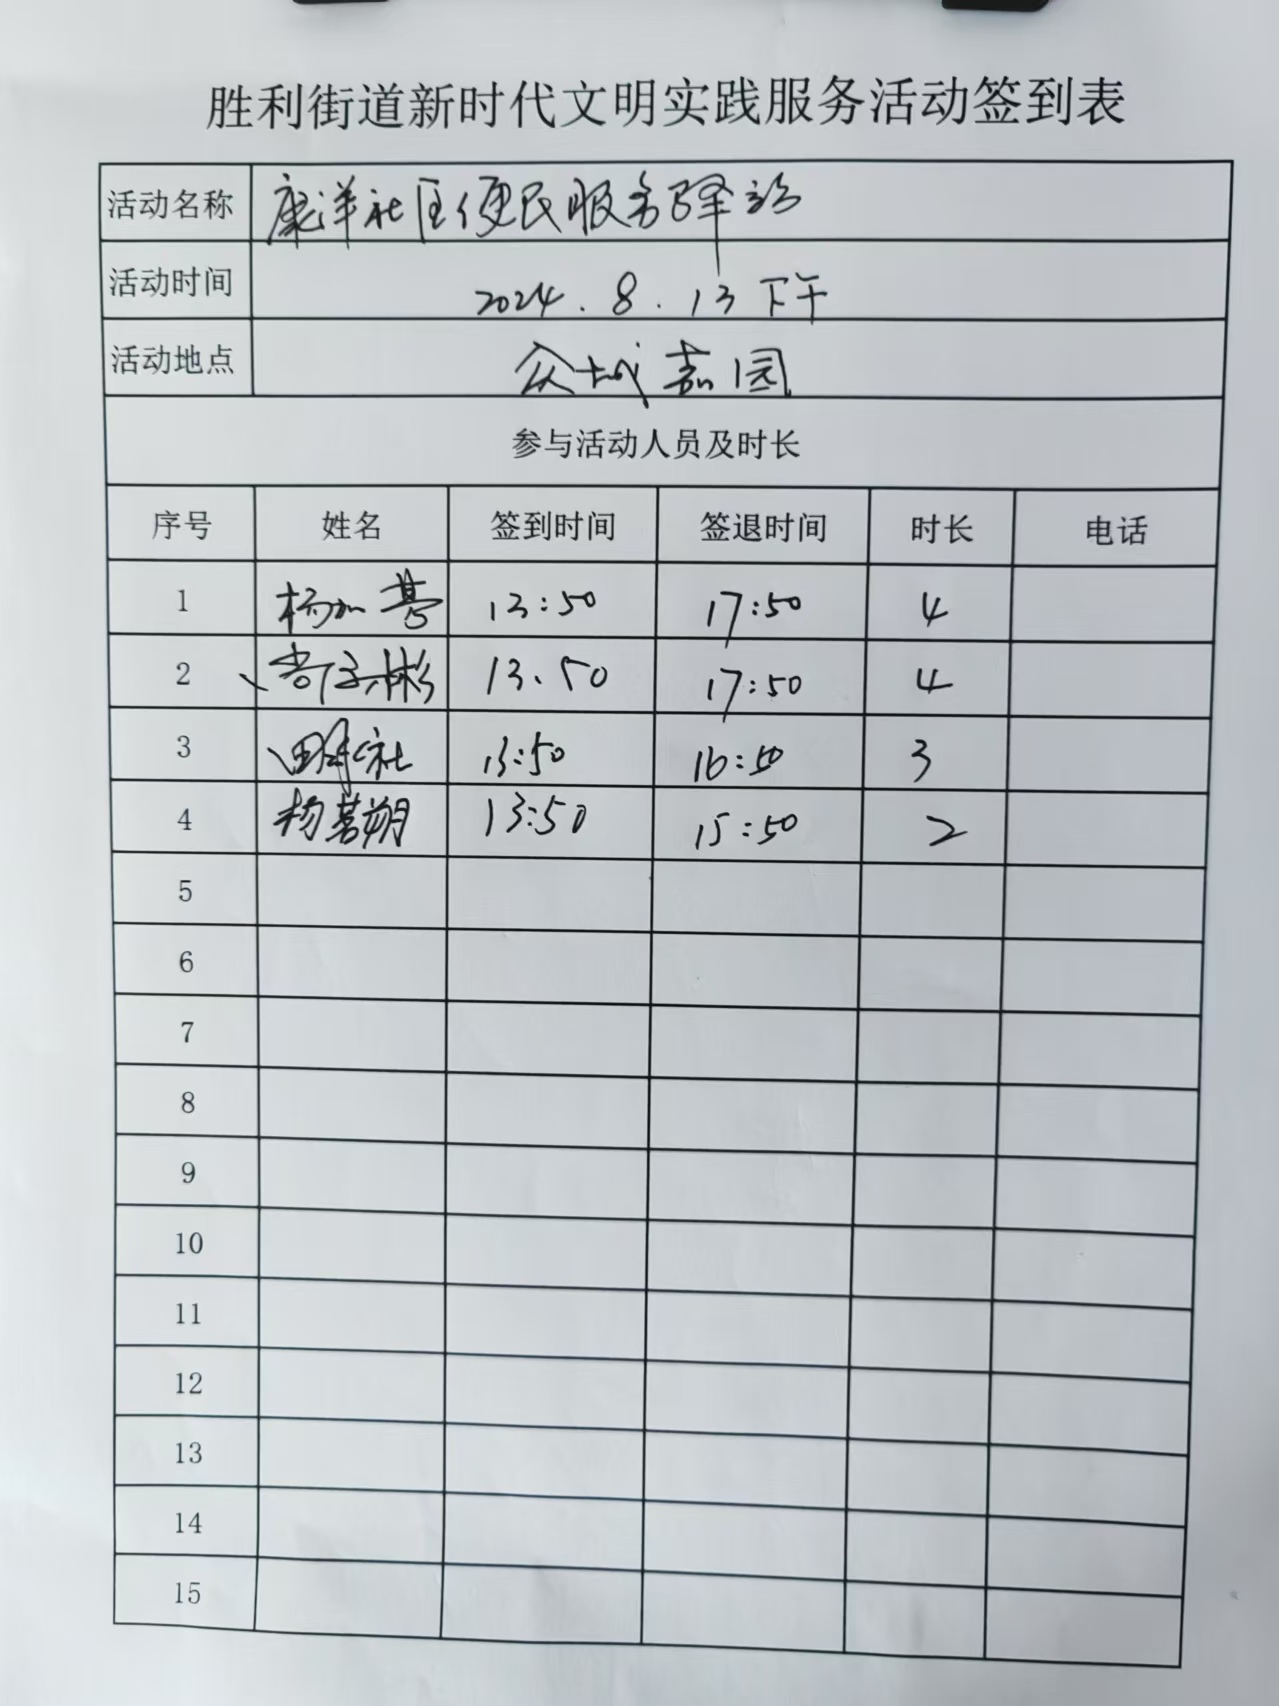 胜利街道新时代文明实践服务活动签到表
活动名称 康洋社区便民服务驿站
活动时间 2024.8.13下午
活动地点 众城嘉园
参与活动人员及时长
序号 姓名 签到时间 签退时间 时长 电话
1 杨 13:50 17:50 4
2 13、50 17:50 4
3 13:50 16:50 3
4 杨茗朔 13:50 15:50 2
5
6
7
8
9
10
11
12
13
14
15